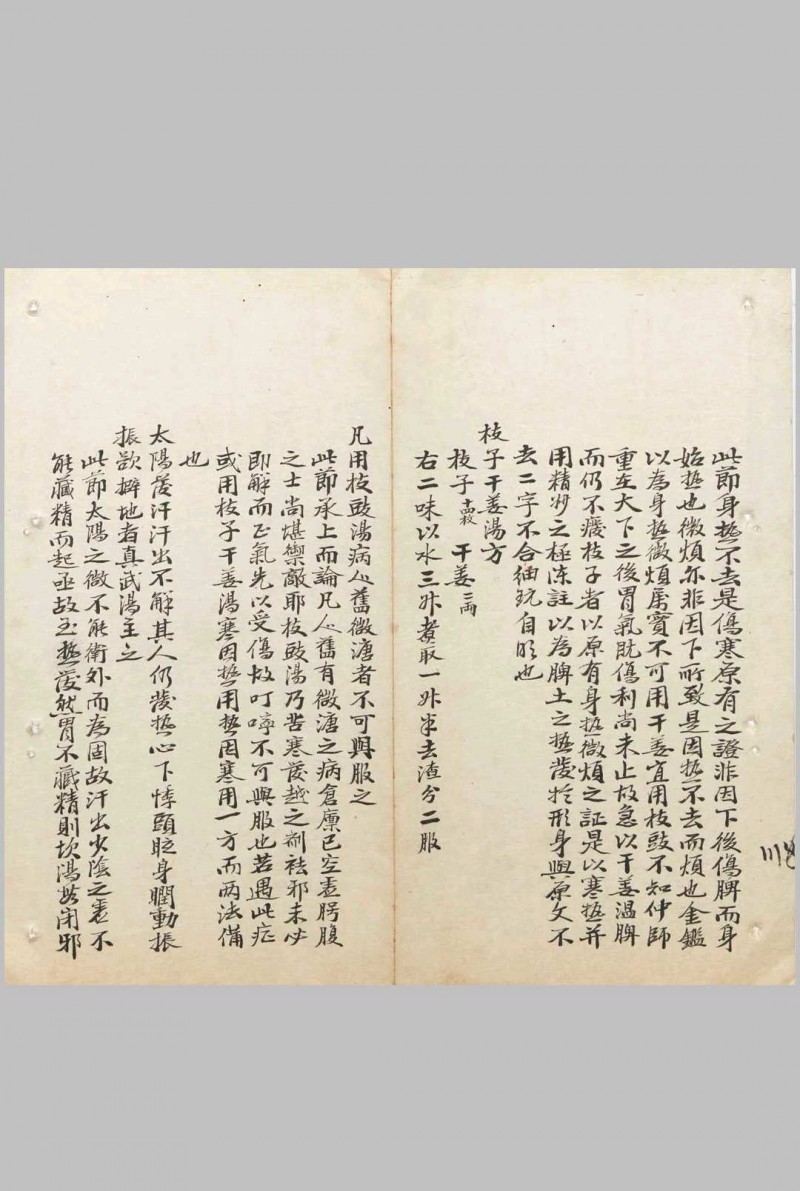 此節身热不去是傷寒原有之證非因下後傷脾而身
始热也微煩亦非因下所致是因热不去而煩也金鑑
以為身热微煩屬實不可用干姜宜用枝豉不知仲師
重在大下之後胃氣既傷利尚未止故急以干姜温脾
而仍不癈枝子者以原有身热微煩之証是以寒热并
用精妙之極陈註以為脾土之热發於形身與原文不
去二字不合細玩自明也
枝子干姜湯方
枝子十四枚 干姜二両
右二味以水三升煮取一升半去渣分二服
凡用枝豉湯病人舊微溏者不可與服之
此節承上而論凡人舊有微溏之病倉廪已空虚腭腹
之士尚堪禦敵耶枝豉湯乃苦寒發越之剂祛邪未必
即解而正氣先以受傷故叮嚀不可與服也若遇此症
或用枝子干姜湯寒因热用热因寒用一方而两法備
也
太陽發汗汗出不解其人仍發热心下悸頭眩身瞤動振
振欲擗地者真武湯主之
此節太陽之微不能衛外而為固故汗出少陰之裏不
能藏精而起亟故玉热發然胃不藏精則坎陽 闭邪